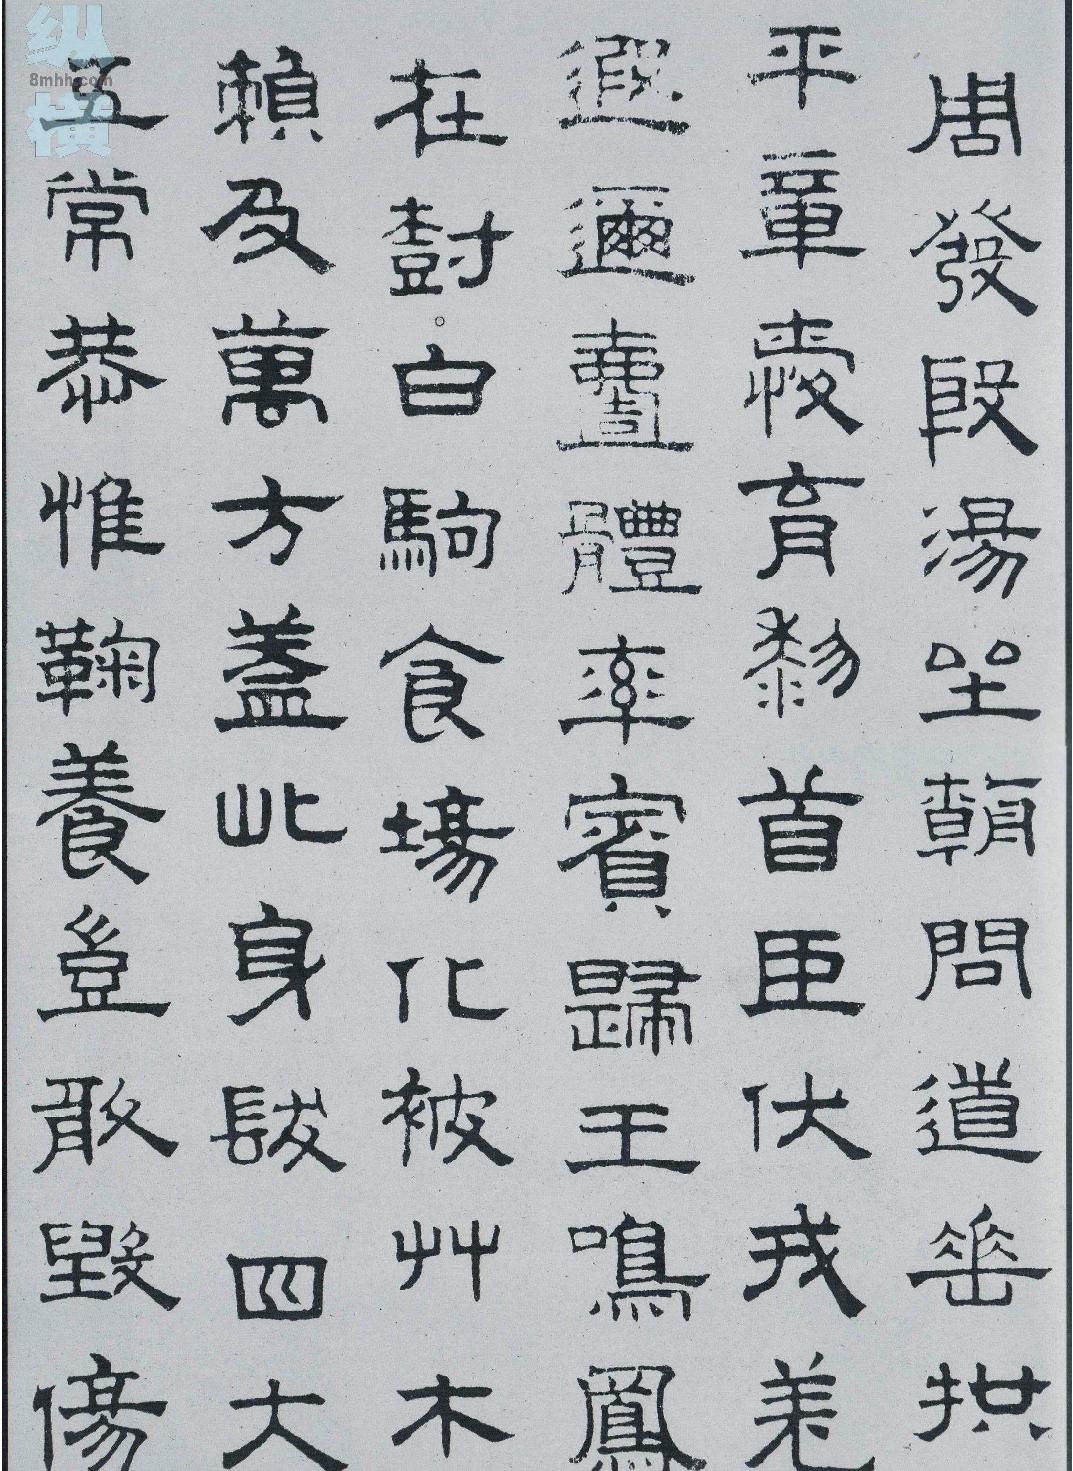 周發殷湯坐朝問道垂拱
平章愛育黎首臣伏戎羌
遐邇壹體率賓歸王鳴鳳
在樹白駒食場化被草木
賴及萬方蓋此身髮四大
五常恭惟鞠養豈敢毀傷
纵横
8mhh.com